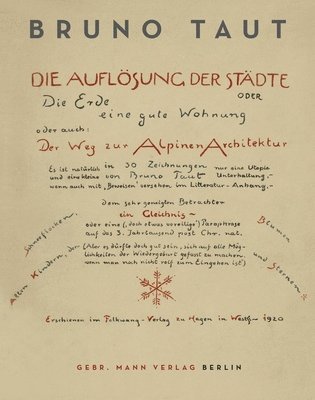 BRUNO TAUT
DIE AUFLÖSUNG DER STÄDTE
ODER
Die Erde
eine gute Wohnung
oder auch:
Der Weg zur Alpinen Architektur
Es ist natürlich in 30 Zeichnungen nur eine Utopie
und eine kleine von Bruno Taut Unterhaltung,-
wenn auch mit „Beweisen" versehen im Litteratur-Anhang,-
dem sehr geneigten Betrachter
ein Gleichnis-
oder eine (, doch etwas voreilige) Paraphrase
auf das 3. Jahrtausend post Chr. nat.
(Aber es dürfte doch gut sein, sich auf alle Mög-
lichkeiten der Wiedergeburt gefasst zu machen,
wenn man noch nicht reif zum Eingehen ist)
Allen Kindern, den Schneeflocken,
Blumen und Sternen
Erschienen im Folkwang-Verlag zu Hagen in Westf. 1920
GEBR. MANN VERLAG BERLIN